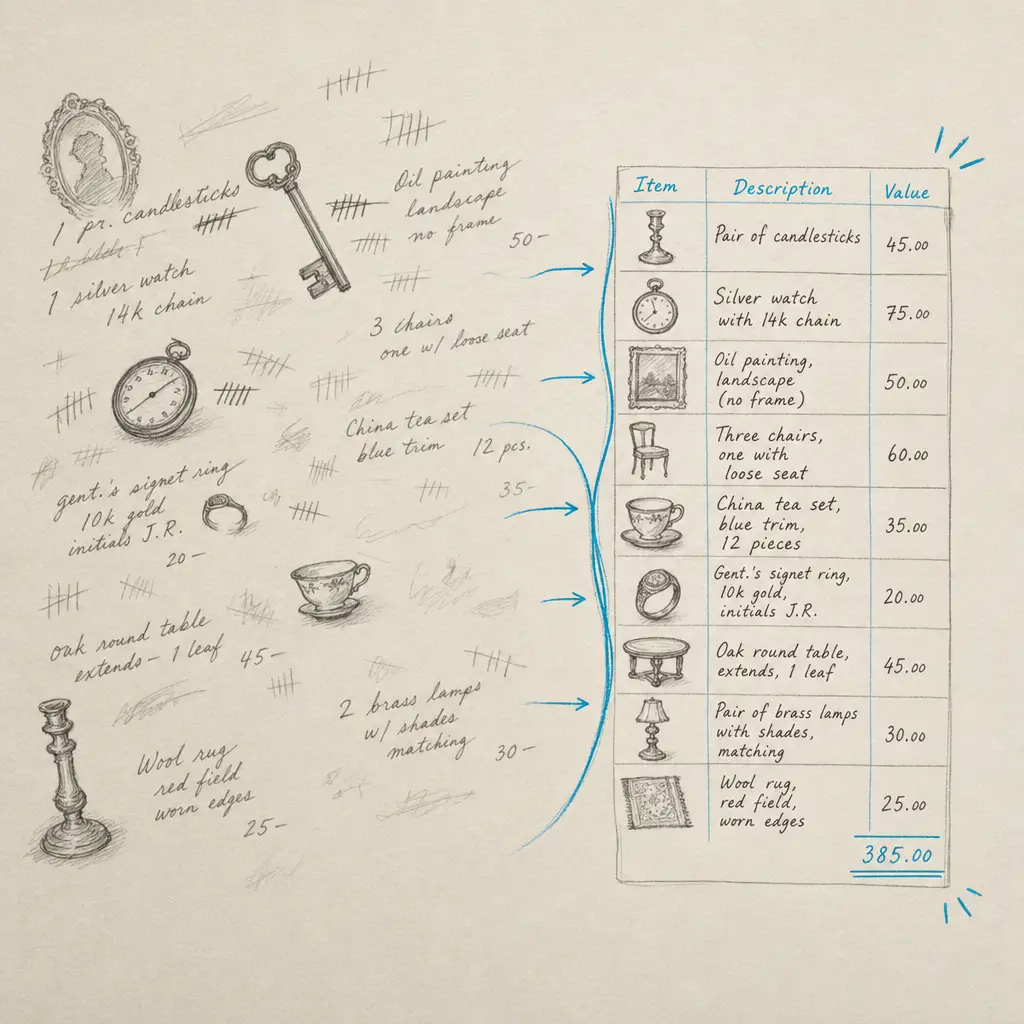 1 pr. candlesticks
1 silver watch
14k chain
Oil painting
landscape
no frame
50–
3 chairs
one w/ loose seat
China tea set
blue trim 12 pcs.
35–
gent.'s signet ring
10k gold
initials J.R.
20–
oak round table
extends – 1 leaf 45–
2 brass lamps
w/ shades
matching
30–
Wool rug
red field
worn edges
25–
Item Description Value
Pair of candlesticks 45.00
Silver watch
with 14k chain 75.00
Oil painting,
landscape 50.00
(no frame)
Three chairs,
one with 60.00
loose seat
China tea set,
blue trim, 35.00
12 pieces
Gent.'s signet ring,
10k gold, 20.00
initials J.R.
Oak round table,
extends, 1 leaf 45.00
Pair of brass lamps
with shades, 30.00
matching
Wool rug,
red field, 25.00
worn edges
385.00